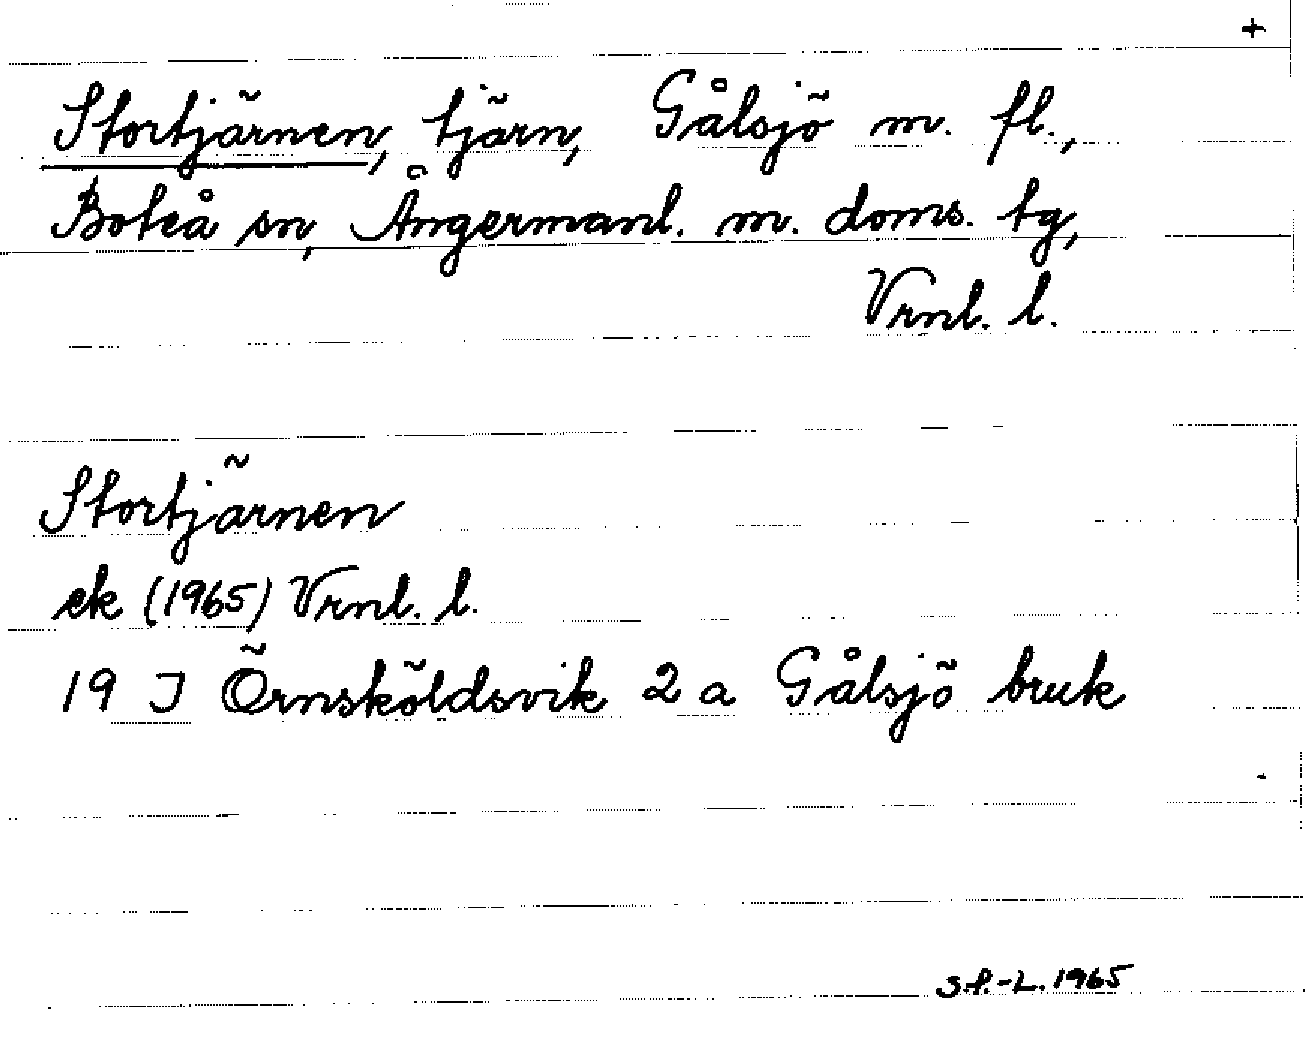 +
Stortjärnen, tjärn, Gålsjö m. fl.,
Boteå sn, Ångermanl. m. doms. tg,
Vrnl. l.
Stortjärnen
ek (1965) Vrnl. l.
19 J Örnsköldsvik 2 a Gålsjö bruk
S.P.-L. 1965